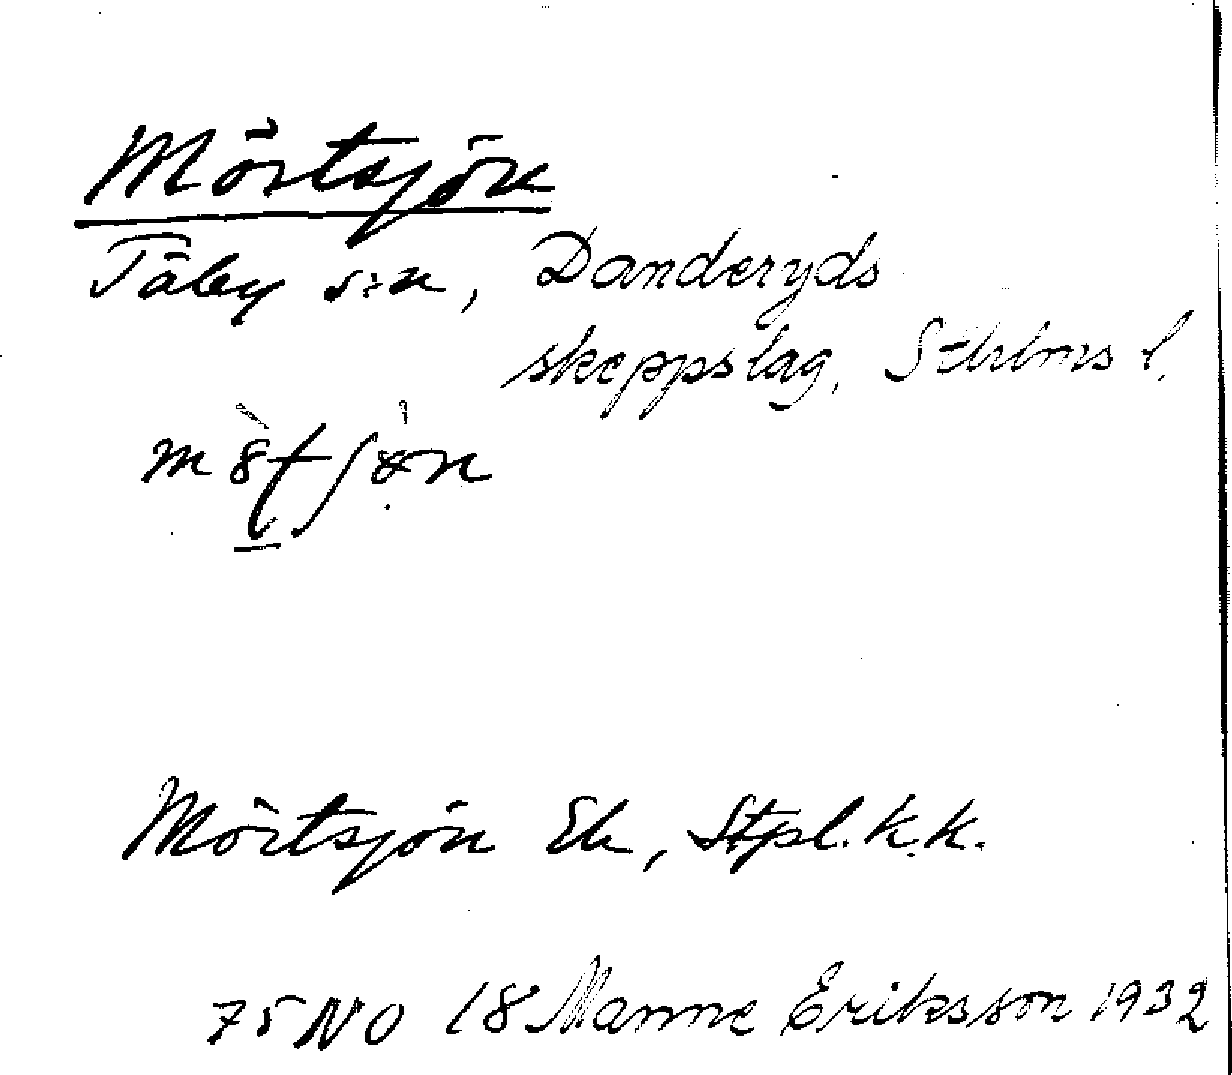 Mörtsjön
Täby sn, Danderyds
skeppslag, Sthlms l.
Mörtsjön Ek, Stpl. k.k.
75 NO 18 Manne Eriksson 1932